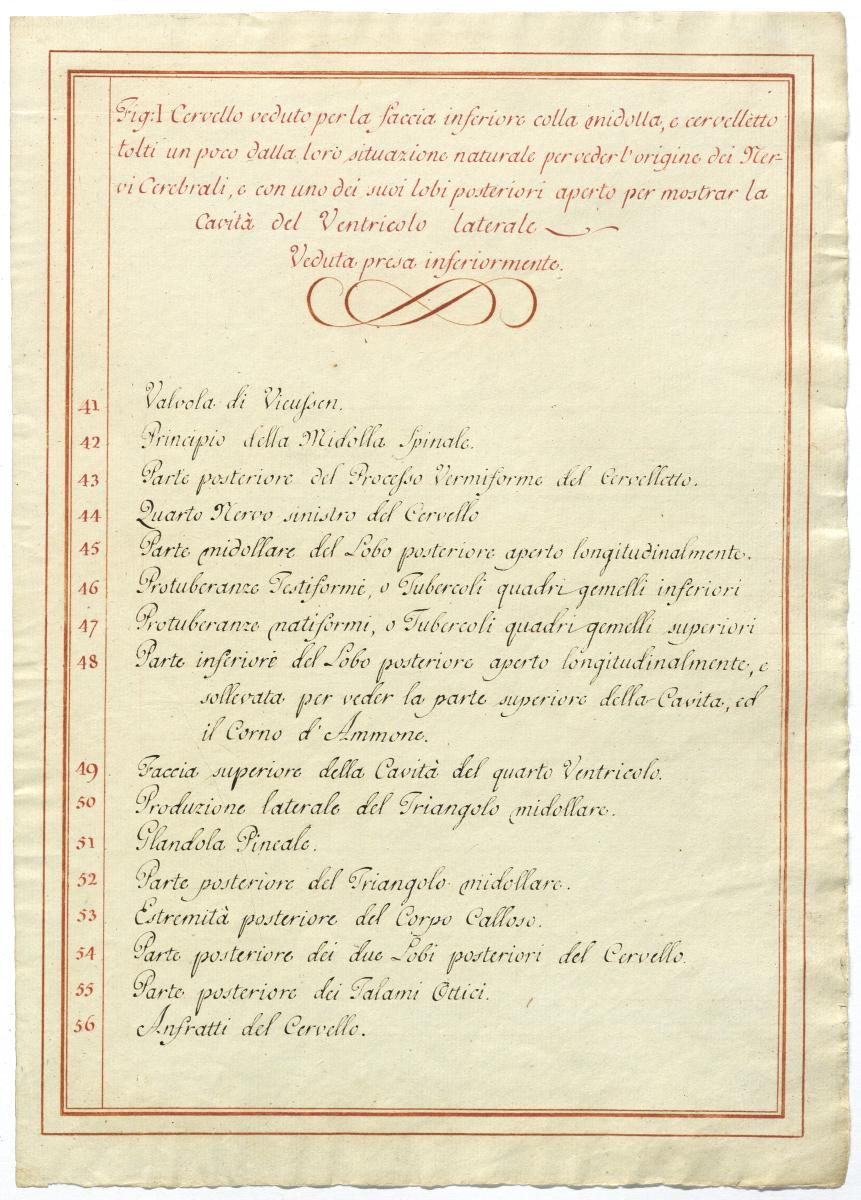 Fig: I Cervello veduto per la faccia inferiore colla midolla, e cervelletto
tolti un poco dalla loro situazione naturale per veder l'origine dei Ner-
vi Cerebrali, e con uno dei suoi lobi posteriori aperto per mostrar la
Cavità del Ventricolo laterale
Veduta presa inferiormente.
41 Valvola di Vieussen.
42 Principio della Midolla Spinale.
43 Parte posteriore del Processo Vermiforme del Cervelletto.
44 Quarto Nervo sinistro del Cervello
45 Parte midollare del Lobo posteriore aperto longitudinalmente.
46 Protuberanze Testiformi, o Tubercoli quadri gemelli inferiori
47 Protuberanze natiformi, o Tubercoli quadri gemelli superiori
48 Parte inferiore del Lobo posteriore aperto longitudinalmente, e
sollevata per veder la parte superiore della Cavita, ed
il Corno d'Ammone.
49 Faccia superiore della Cavità del quarto Ventricolo.
50 Produzione laterale del Triangolo midollare.
51 Glandola Pineale.
52 Parte posteriore del Triangolo midollare.
53 Estremità posteriore del Corpo Calloso.
54 Parte posteriore dei due Lobi posteriori del Cervello.
55 Parte posteriore dei Talami Ottici.
56 Anfratti del Cervello.